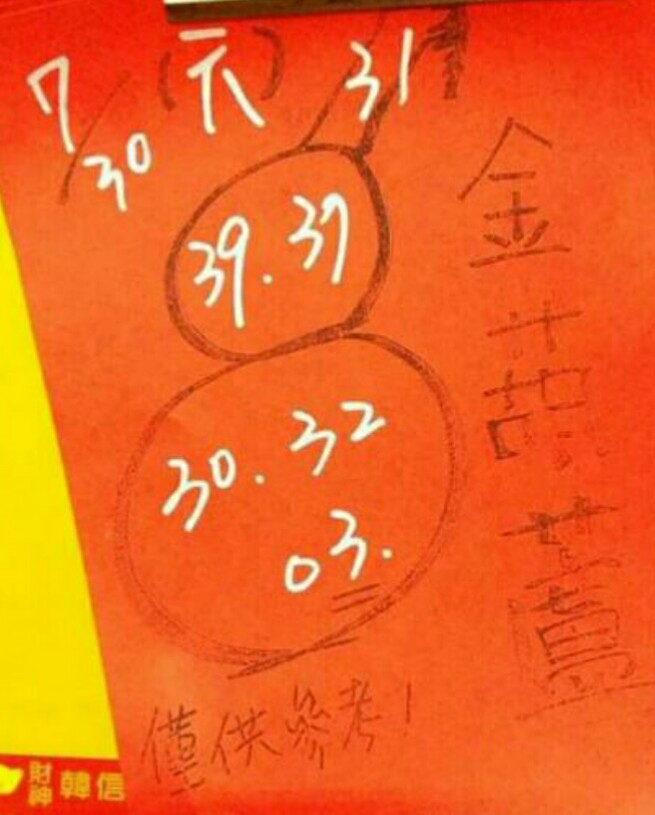 7/30 (六) 31
39.37
30.32
03.
金葫蘆
僅供參考!
財神 韓信